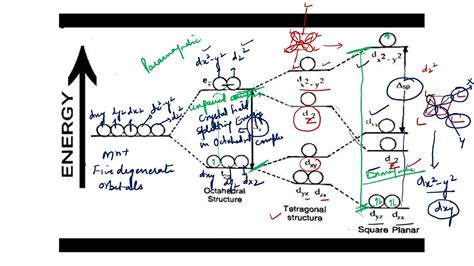 ENERGY
Paramagnetic
dx²-y² dz²
dxy dyz dxz dx²-y² dz²
Mn+
Five degenerate
orbitals
unpaired
Crystal Field
Splitting Energy
in Octahedral complex
dxy dyz dxz
Octahedral
structure
L
L
d x²-y²
d z²
d xy
d yz d zx
Tetragonal
structure
d x²-y²
Δsp
d xy
d z²
d yz d zx
Square Planar
dz²
dx²-y²
dxy